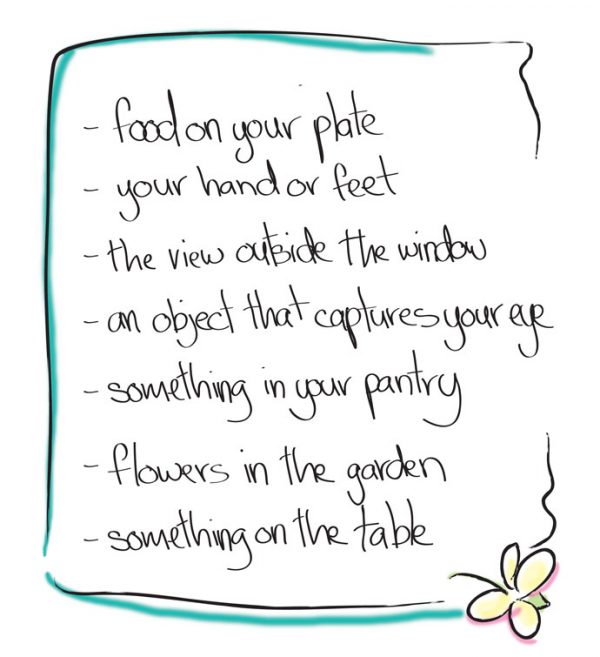 - food on your plate
- your hand or feet
- the view outside the window
- an object that captures your eye
- something in your pantry
- flowers in the garden
- something on the table